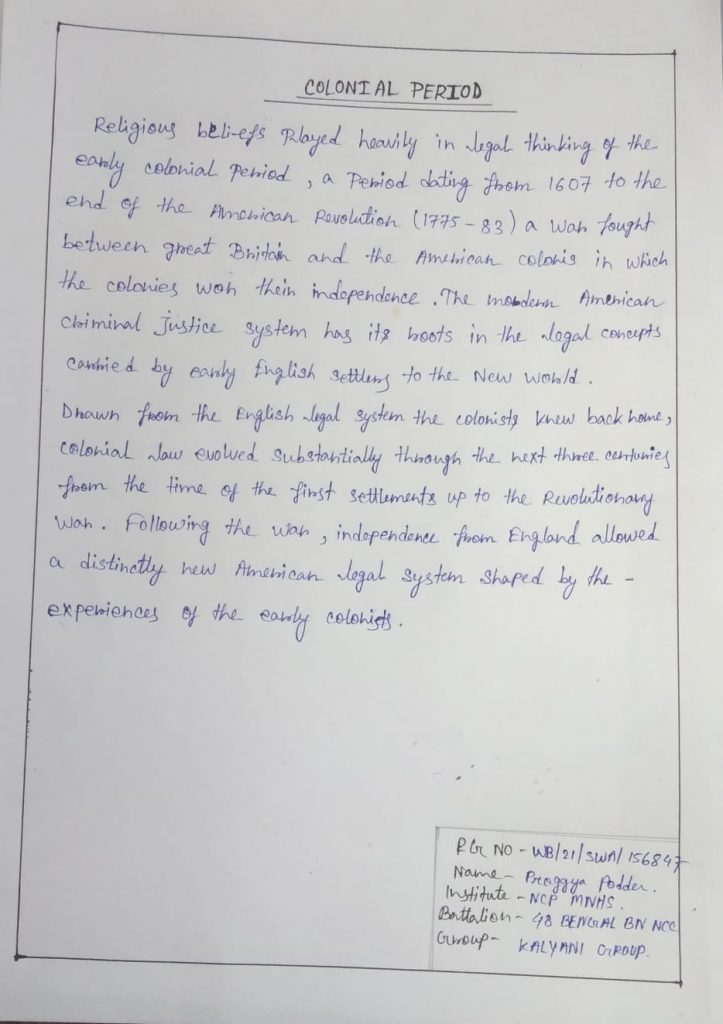 COLONIAL PERIOD
Religious beliefs Played heavily in legal thinking of the
early colonial Period , a Period dating from 1607 to the
end of the American Revolution (1775-83) a war fought
between great Britain and the American colonis in which
the colonies won their independence . The modern American
criminal Justice system has its roots in the legal concepts
carried by early English settlers to the New world .
Drawn from the English legal system the colonists knew back home,
colonial law evolved substantially through the next three centuries
from the time of the first settlements up to the Revolutionary
War . Following the war , independence from England allowed
a distinctly new American legal system shaped by the -
experiences of the early colonists .
RG NO - WB/21/SWA/156847
Name - Praggya Podder .
Institute - NCP MNHS .
Battalion - 48 BENGAL BN NCC
Group - KALYANI GROUP .